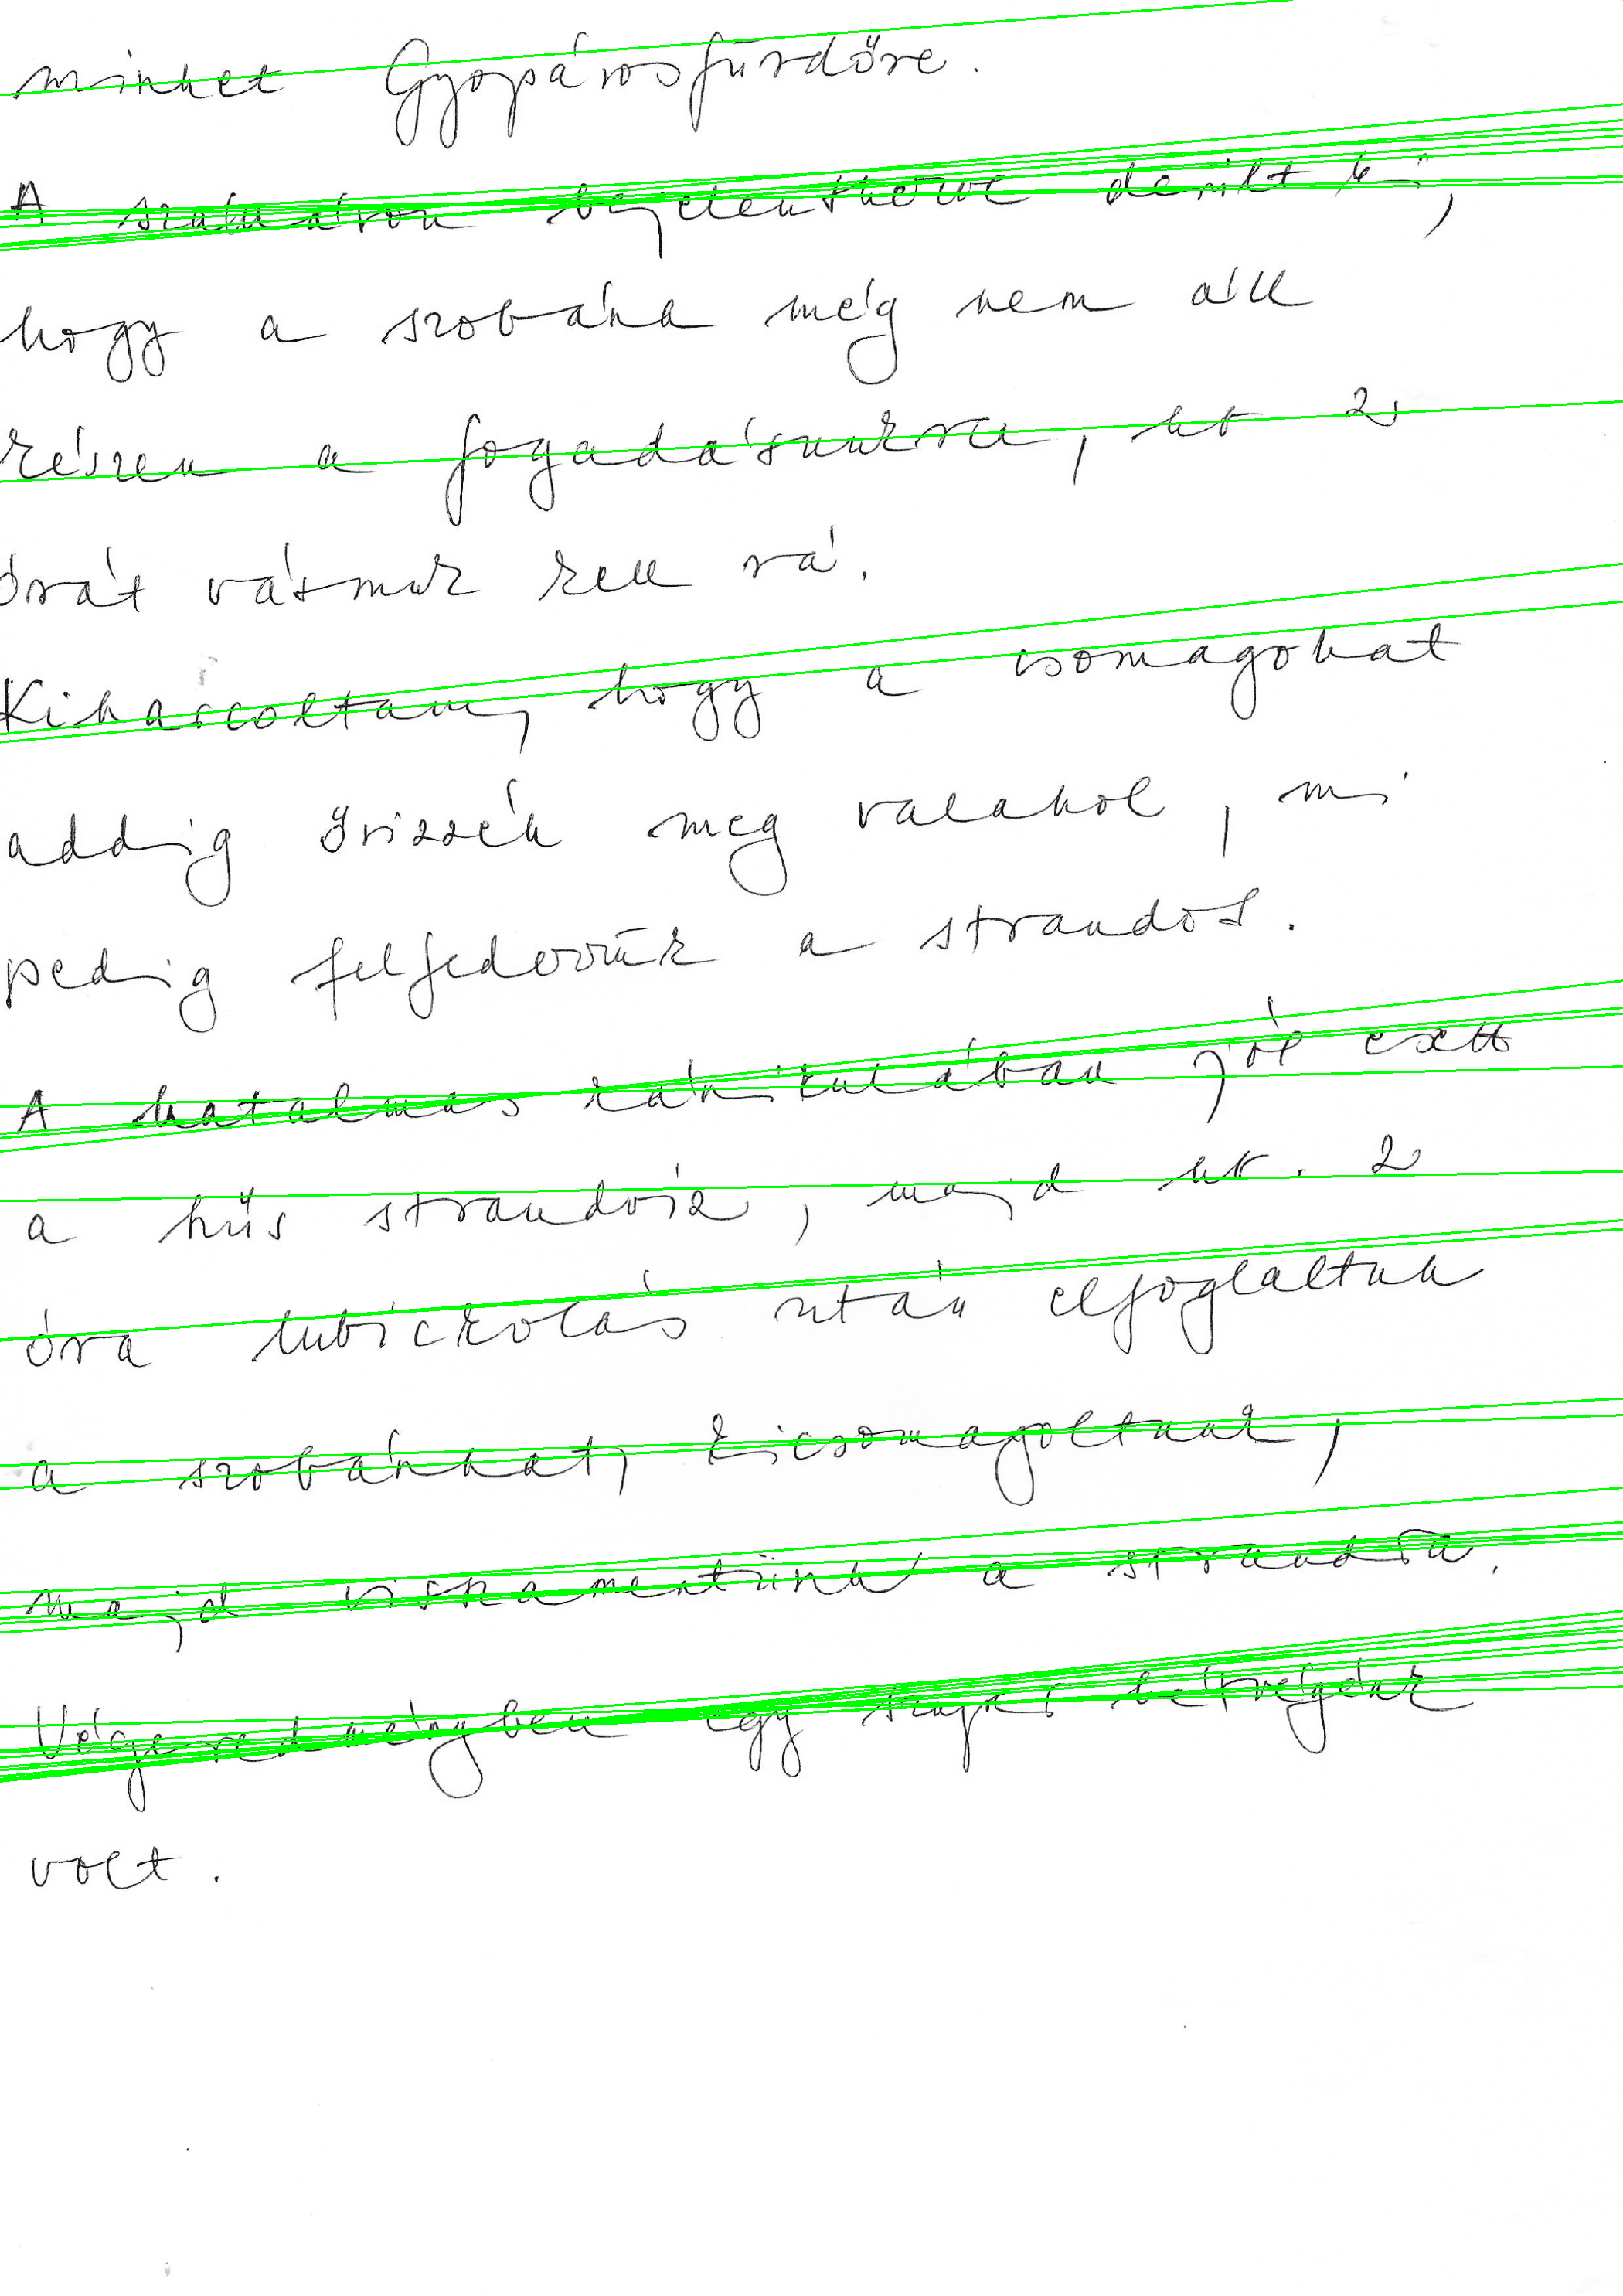 minket Gyopárosfürdőre.
A szállodában bejelentkezve derült ki,
hogy a szobánk még nem áll
készen a fogadásunkra, kb 2
órát várnunk kell rá.
Kiharcoltam, hogy a csomagokat
addig őrizzék meg valahol, mi
pedig felfedezzük a strandot.
A hatalmas kánikulában jól esett
a hűs strandvíz, majd kb. 2
óra lubickolás után elfoglaltuk
a szobánkat, kicsomagoltunk,
majd visszamentünk a strandra.
Végeredményben egy szuper hétvégénk
volt.